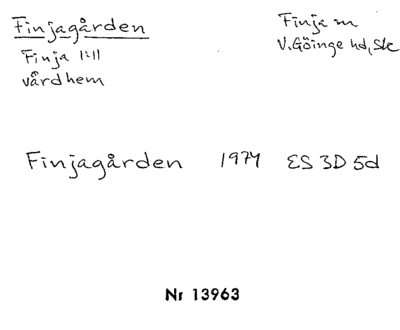 Finjagården
Finja 1:11
vårdhem
Finja sn
V.Göinge hd, Sk
Finjagården 1974 ES 3D 5d
Nr 13963